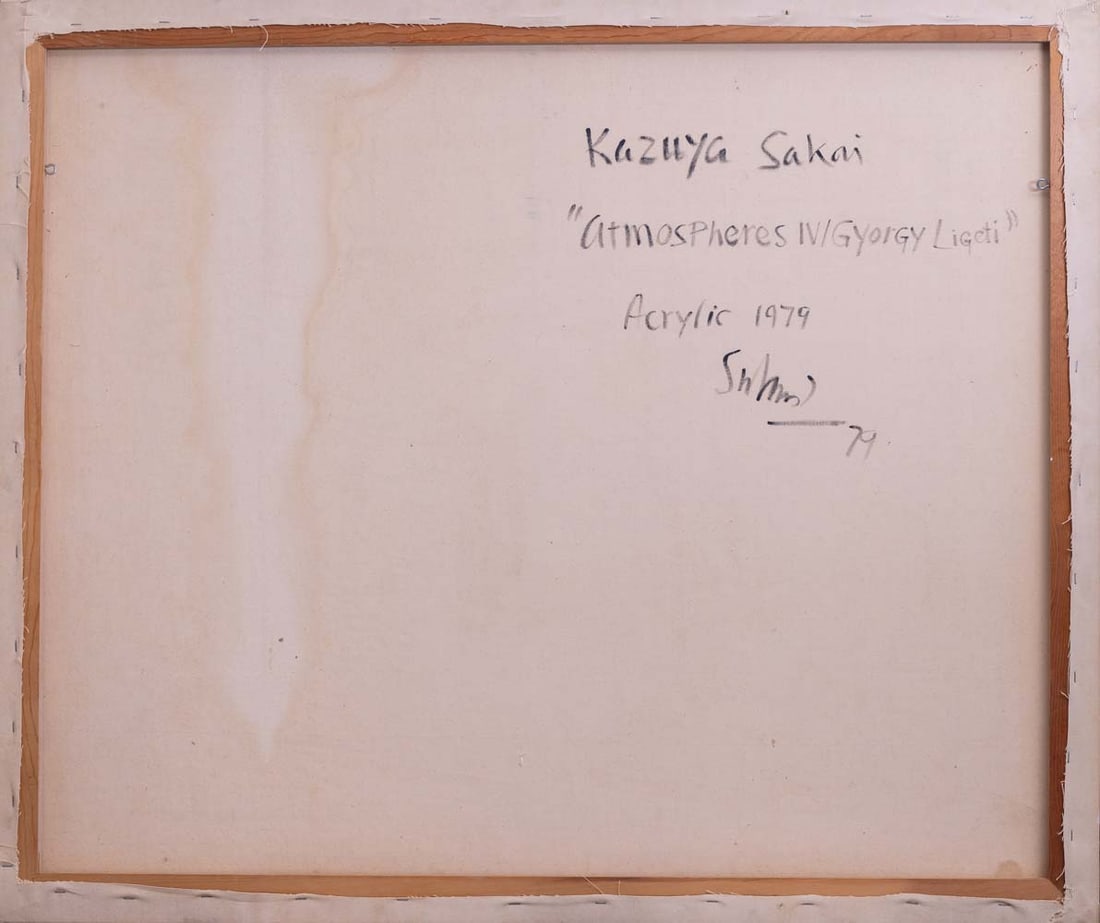 Kazuya Sakai
"Atmospheres IV/Gyorgy Ligeti"
Acrylic 1979
Sakai
79